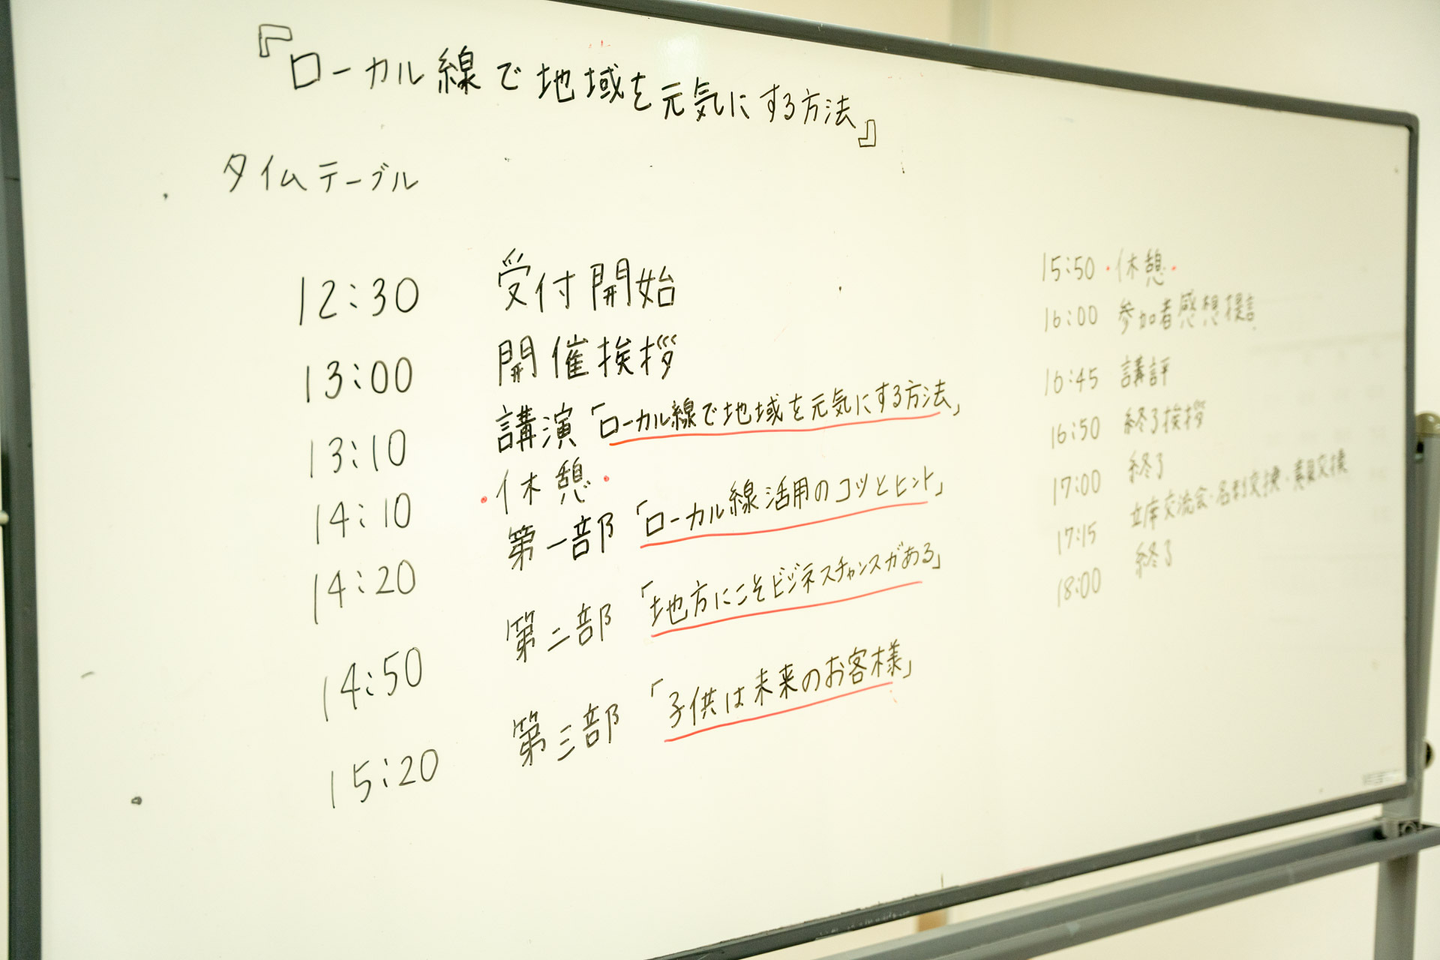 『ローカル線で地域を元気にする方法』
タイムテーブル
12:30 受付開始
13:00 開催挨拶
13:10 講演「ローカル線で地域を元気にする方法」
14:10 ・休憩・
14:20 第一部「ローカル線活用のコツとヒント」
14:50 第二部「地方にこそビジネスチャンスがある」
15:20 第三部「子供は未来のお客様」
15:50 ・休憩・
16:00 参加者感想提言
16:45 講評
16:50 終了挨拶
17:00 終了
17:15 立席交流会・名刺交換・意見交換
18:00 終了